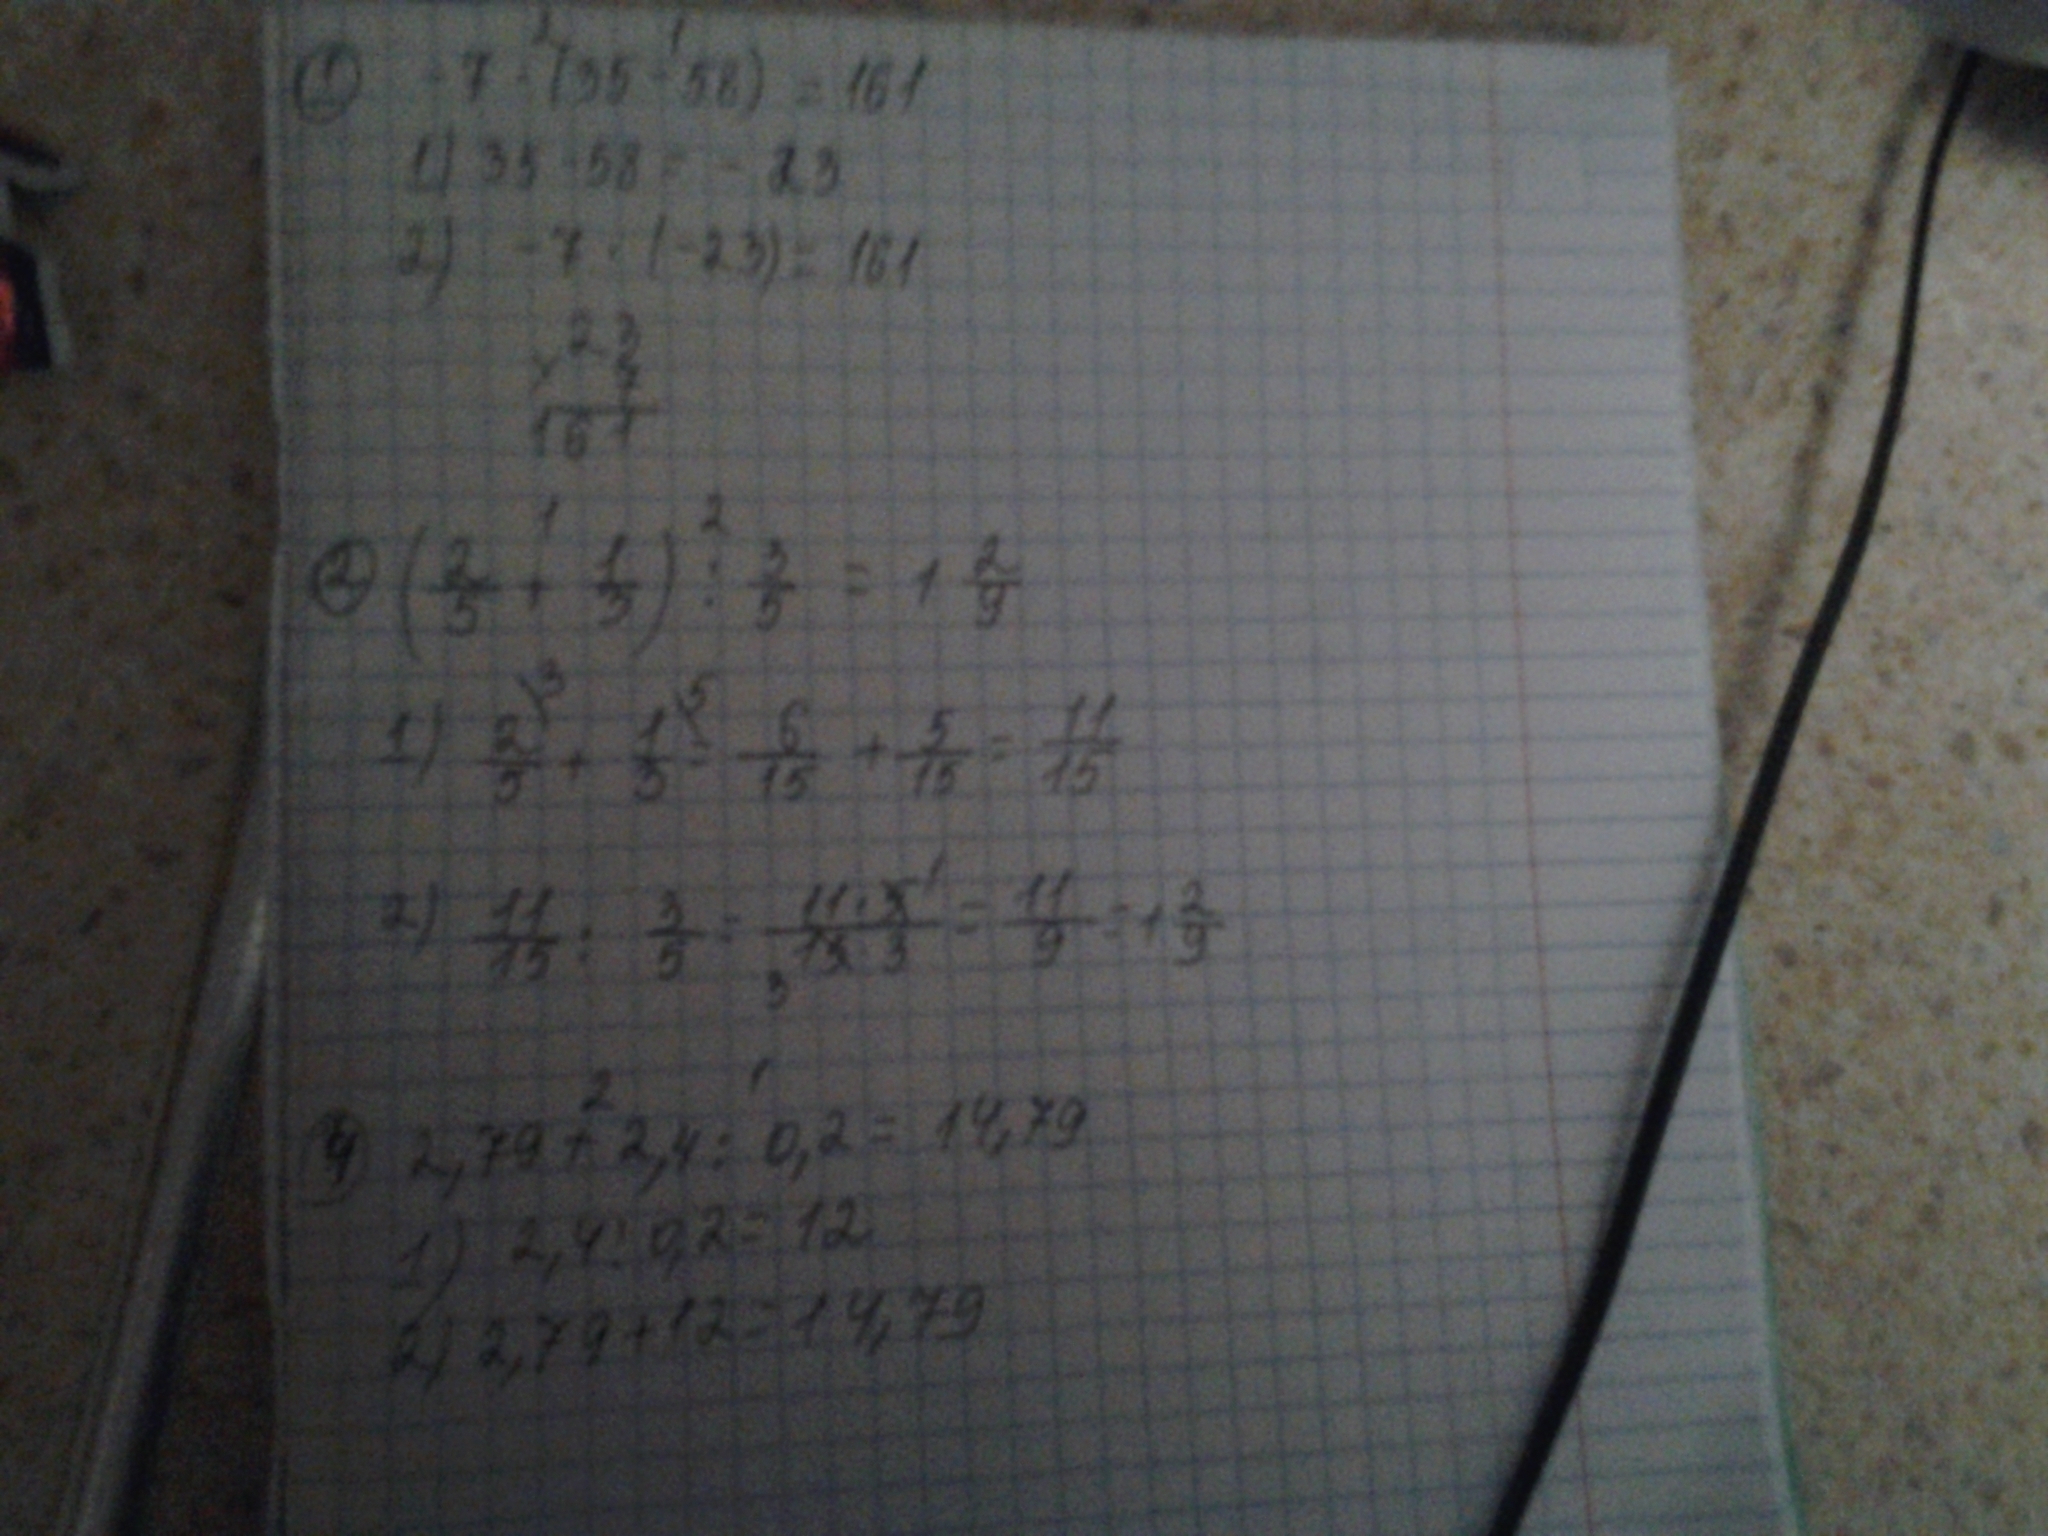 ① -7 · (35 - 58) = 161
1) 35 - 58 = - 23
2) -7 · (-23) = 161
× 23
7
161
② (2/5 + 1/3) : 3/5 = 1 2/9
1) 2/5 \3 + 1/3 \5 = 6/15 + 5/15 = 11/15
2) 11/15 : 3/5 = 11·5/15·3 = 11/9 = 1 2/9
④ 2,79 + 2,4 : 0,2 = 14,79
1) 2,4 : 0,2 = 12
2) 2,79 + 12 = 14,79